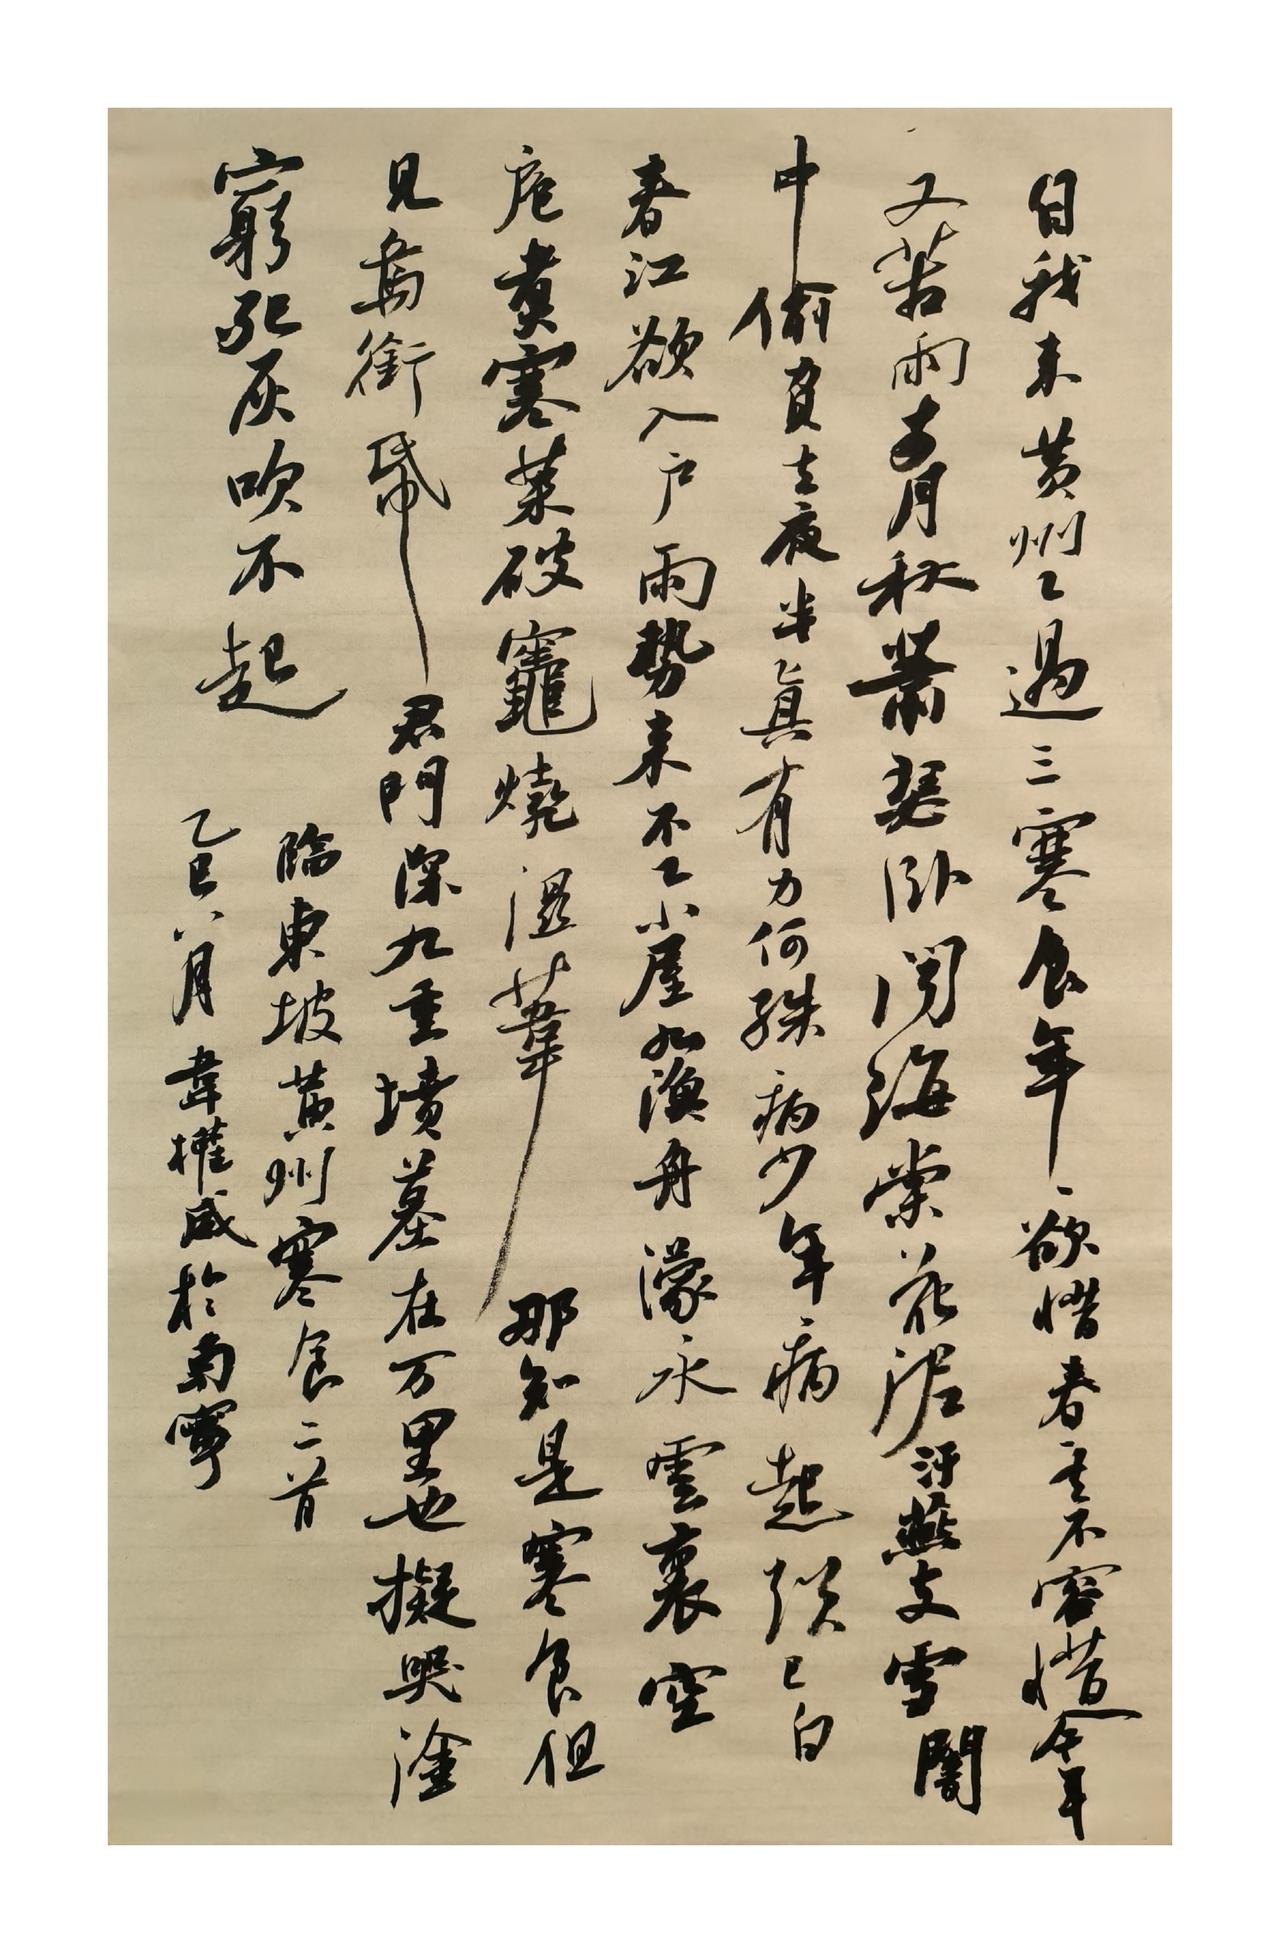 自我来黄州已過三寒食年年欲惜春春去不容惜今年
又苦雨两月秋蕭瑟卧聞海棠花泥汙燕支雪闇
中偷負去夜半真有力何殊病少年病起頭已白
春江欲入户雨势来不已小屋如漁舟濛水雲裏空
庖煮寒菜破竈燒濕葦那知是寒食但
見烏銜帋君門深九重墳墓在万里也擬哭塗
窮死灰吹不起
臨東坡黄州寒食二首
乙巳八月韋權威於南寧